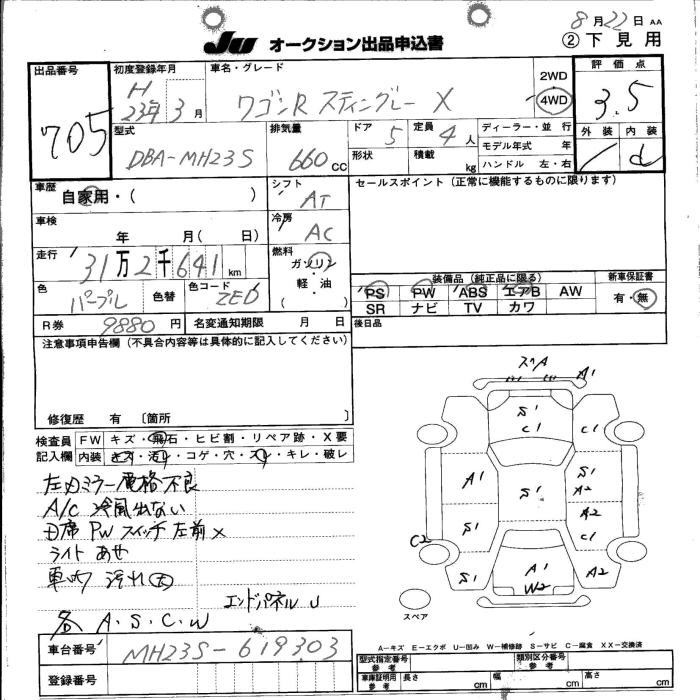 8月22日 AA
JU オークション出品申込書
② 下見用
出品番号
705
初度登録年月
H 23年 3月
車名・グレード
ワゴンR スティングレー X
2WD
4WD
評価点
3.5
外装 内装
d
型式
DBA-MH23S
排気量
660 CC
ドア 5
定員 4 人
形状
積載 kg
ディーラー・並行
モデル年式 年
ハンドル 左・右
車歴
自家用・( )
シフト
AT
セールスポイント(正常に機能するものに限ります)
車検
年 月( 日)
冷房
AC
走行
31万2千641km
燃料
ガソリン
軽・油
( )
色
パープル
色替
色コード
ZED
装備品(純正品に限る)
PS PW ABS エアB AW
SR ナビ TV カワ
新車保証書
有・無
R券 9880 円
名変通知期限 月 日
後日品
注意事項申告欄(不具合内容等は具体的に記入してください)
修復歴 有 〔箇所 〕
検査員記入欄
FW キズ・飛石・ヒビ割・リペア跡・X要
内装 キズ・汚れ・コゲ・穴・スレ・キレ・破レ
左ドアミラー電格不良
A/C 冷風出ない
D席 PWスイッチ 左前 x
ライト あせ
車内 汚れ大
エンドパネル U
各 A.S.C.W
スリA
A1
S1
C1
C1
A1
S1
S1
A2
S1
A2
C1
S1
C2
S1
A1
W2
A2
スペア
A-キズ E-エクボ U-凹み W-補修跡 S-サビ C-腐食 XX-交換済
車台番号
MH23S-619303
登録番号
型式指定番号 参考
類別区分番号 参考
車庫証明用 参考
長さ cm
幅 cm
高さ cm